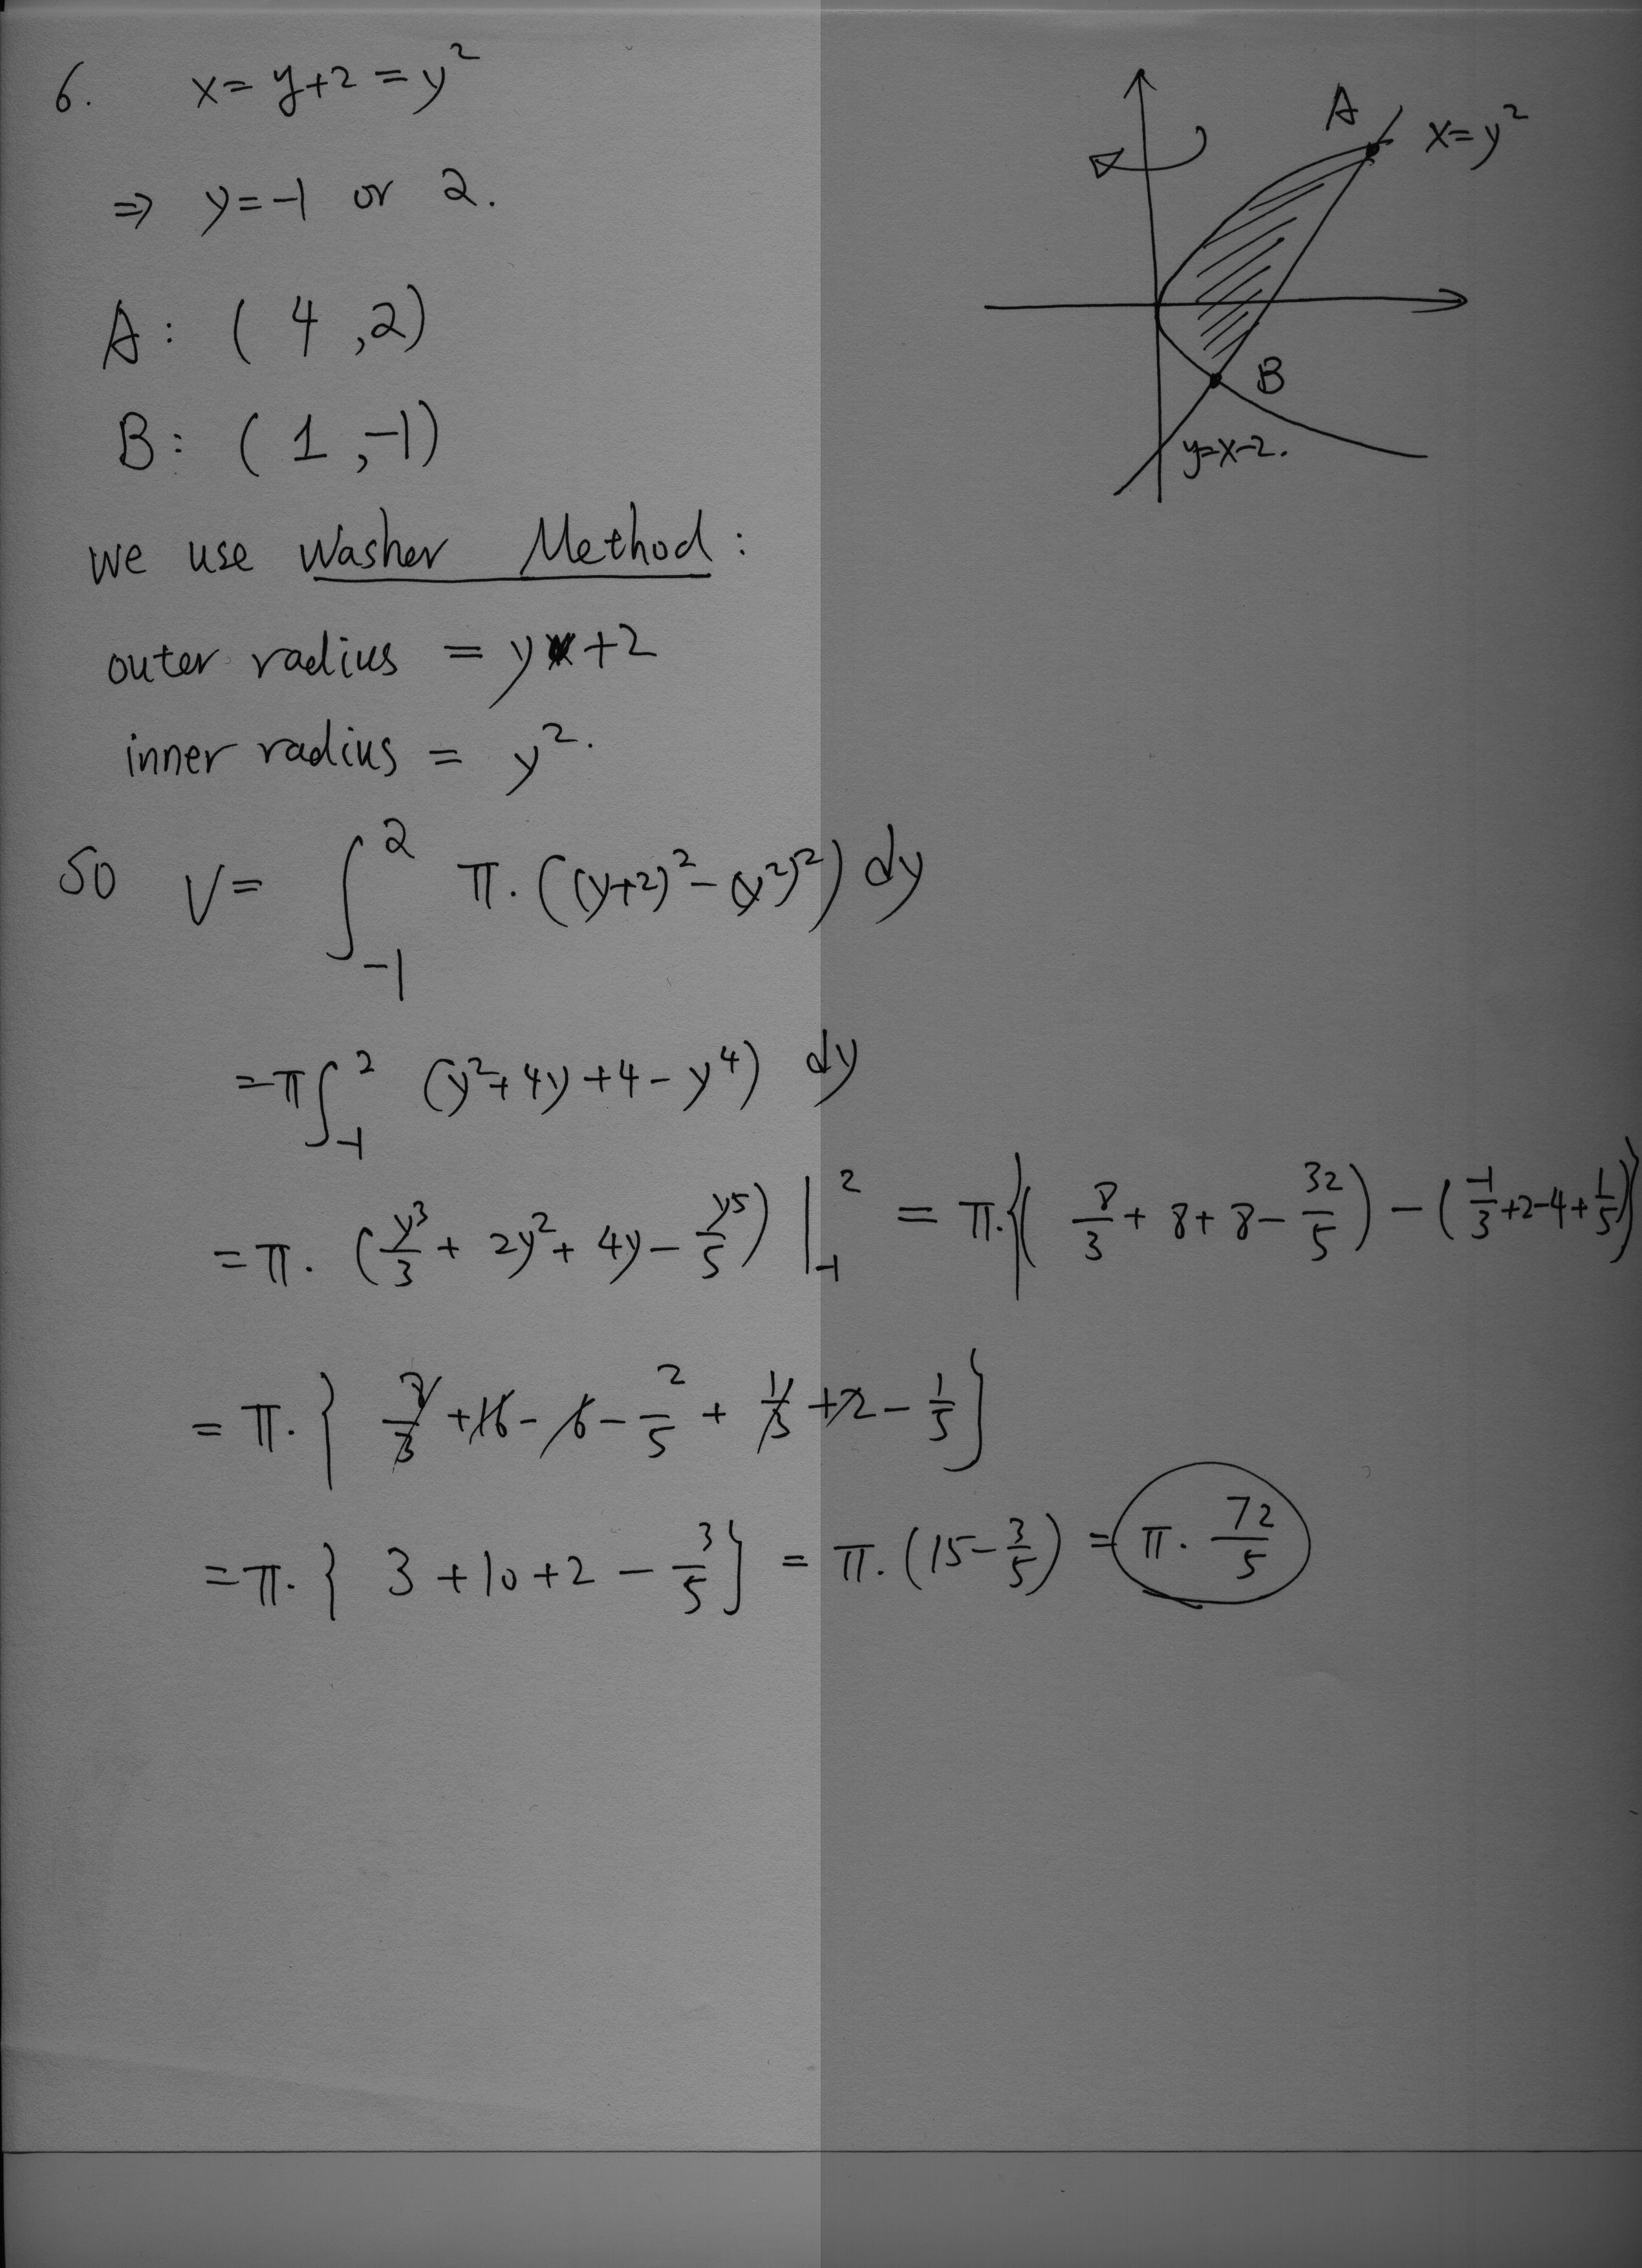 6. x = y+2 = y²
⇒ y = -1 or 2.
A: ( 4 ,2)
B: ( 1 ,-1)
we use Washer Method :
outer radius = y +2
inner radius = y².
So V = ∫_{-1}^{2} π. ((y+2)² - (y²)²) dy
= π ∫_{-1}^{2} (y²+4y+4-y⁴) dy
= π. (y³/3 + 2y² + 4y - y⁵/5) |_{-1}^{2} = π.{( 8/3 + 8 + 8 - 32/5 ) - ( -1/3 +2-4+ 1/5 )}
= π. { 8/3 + 16 - 6 - 2/5 + 1/3 + 2 - 1/5 }
= π. { 3 + 10 + 2 - 3/5 } = π. (15 - 3/5) = π. 72/5
A
x = y²
B
y=x-2.